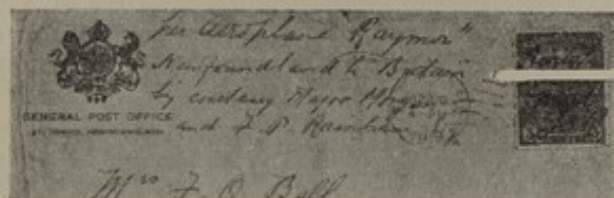 per Aeroplane Raymor"
Newfoundland to Britain
by courtesy Major
and F. P.
GENERAL POST OFFICE
Mrs F. O. Bell